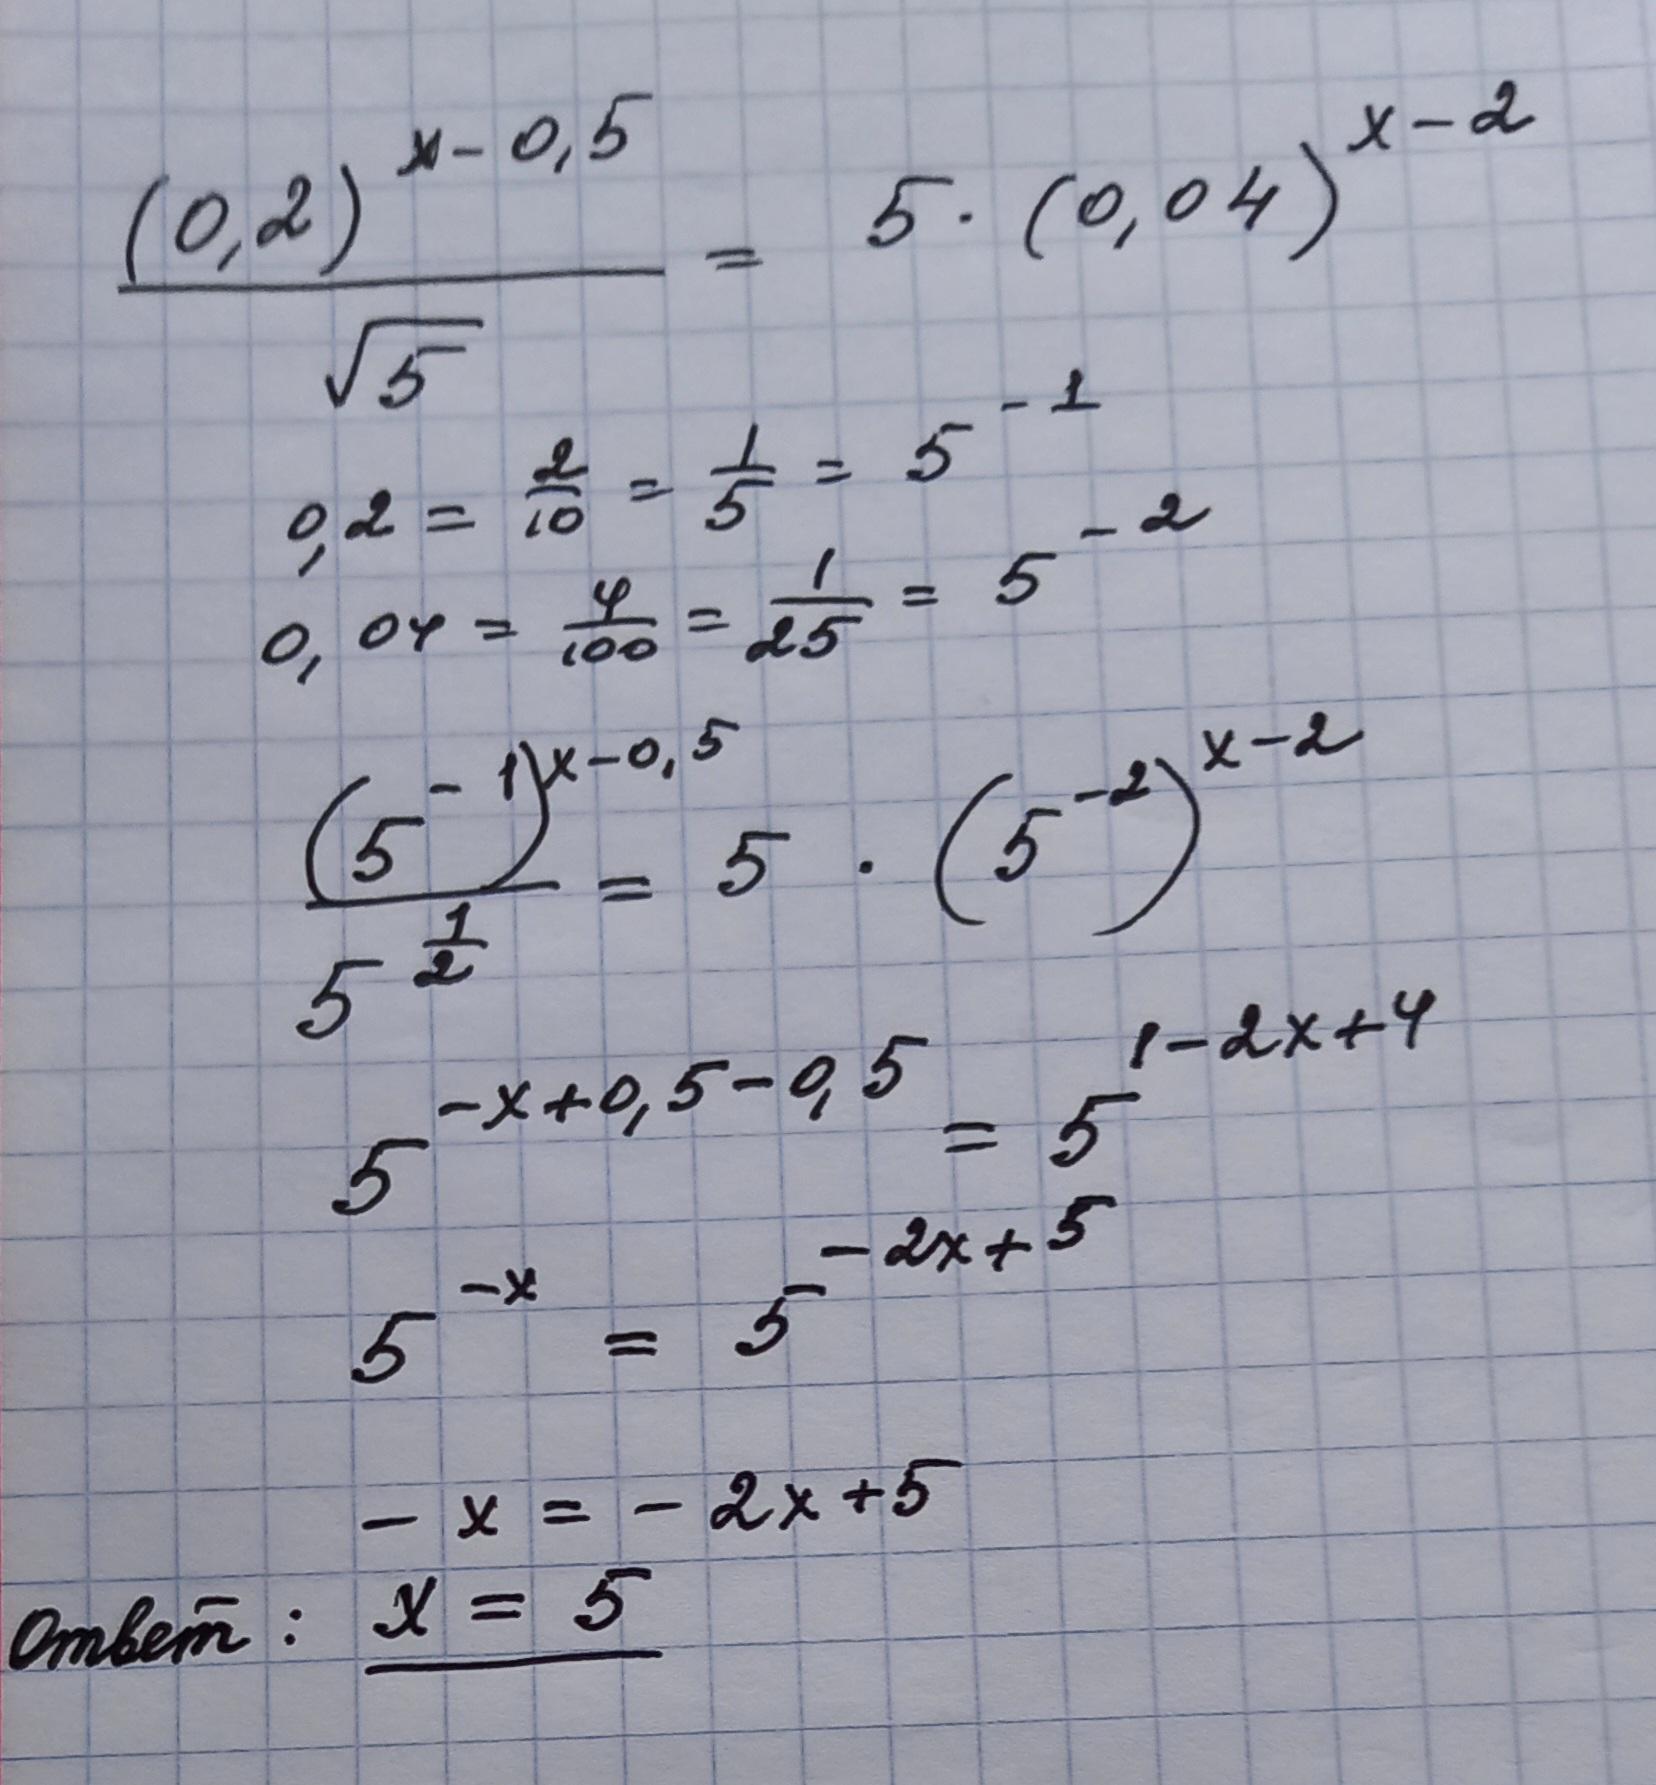 (0,2)^{x-0,5} / √5 = 5 · (0,04)^{x-2}
0,2 = 2/10 = 1/5 = 5^{-1}
0,04 = 4/100 = 1/25 = 5^{-2}
(5^{-1})^{x-0,5} / 5^{1/2} = 5 · (5^{-2})^{x-2}
5^{-x+0,5-0,5} = 5^{1-2x+4}
5^{-x} = 5^{-2x+5}
-x = -2x+5
Ответ: x = 5